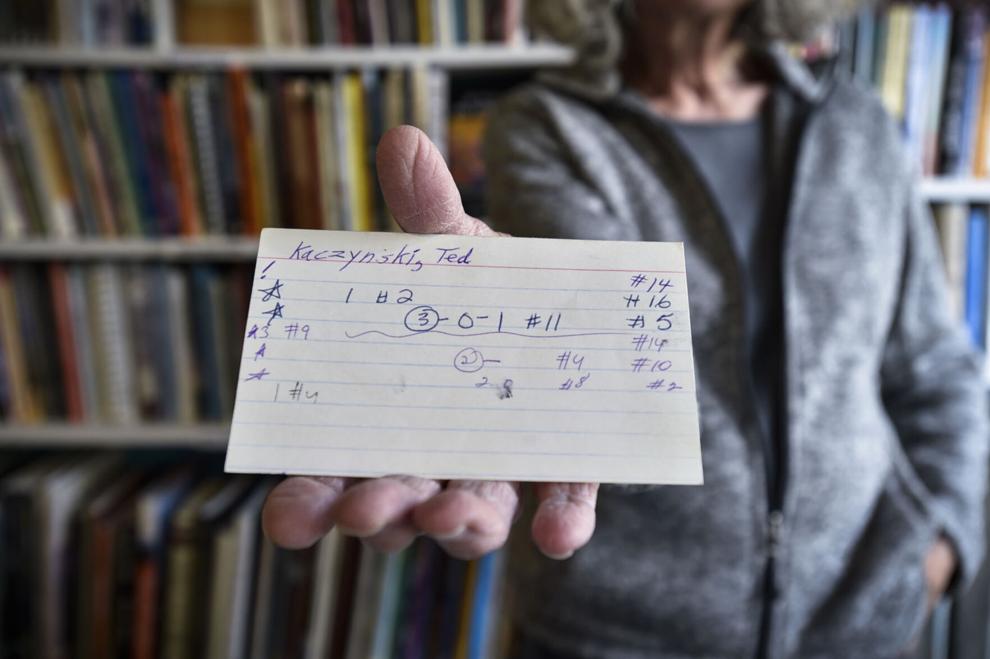 Kaczynski, Ted
! #14
☆ 1 #2 #16
☆ 3-0-1 #11 #5
#9 #14
2- #4 #10
2 #8 #2
1 #4